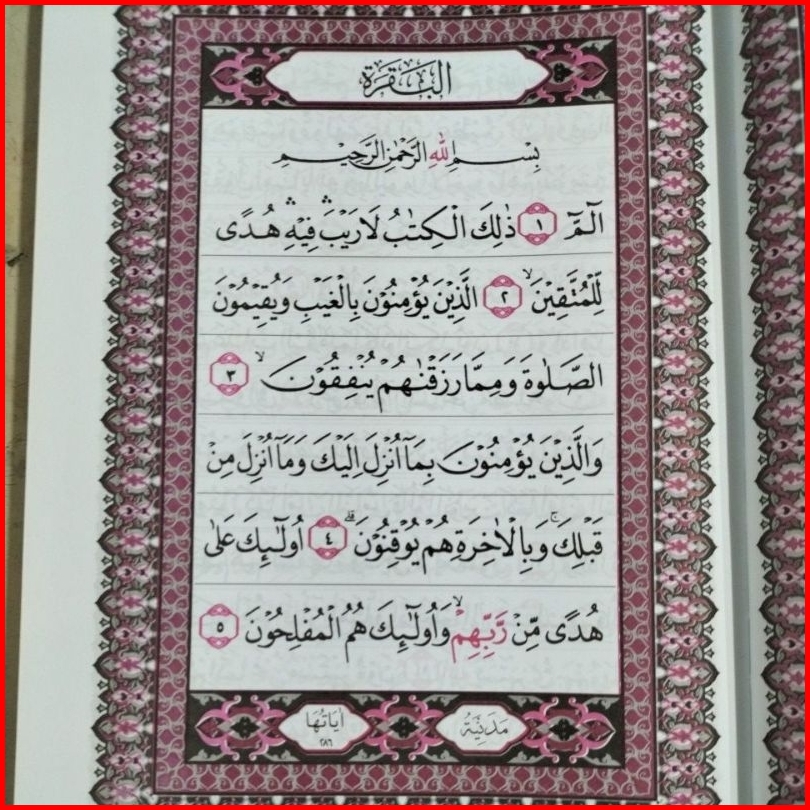 البقرة
بِسْمِ اللهِ الرَّحْمٰنِ الرَّحِيْمِ
الٓمّٓ ۝١ ذٰلِكَ الْكِتٰبُ لَا رَيْبَ ۛ فِيْهِ ۛ هُدًى
لِّلْمُتَّقِيْنَ ۙ ۝٢ الَّذِيْنَ يُؤْمِنُوْنَ بِالْغَيْبِ وَيُقِيْمُوْنَ
الصَّلٰوةَ وَمِمَّا رَزَقْنٰهُمْ يُنْفِقُوْنَ ۙ ۝٣
وَالَّذِيْنَ يُؤْمِنُوْنَ بِمَآ اُنْزِلَ اِلَيْكَ وَمَآ اُنْزِلَ مِنْ
قَبْلِكَ ۚ وَبِالْاٰخِرَةِ هُمْ يُوْقِنُوْنَ ۗ ۝٤ اُولٰٓئِكَ عَلٰى
هُدًى مِّنْ رَّبِّهِمْ ۙ وَاُولٰٓئِكَ هُمُ الْمُفْلِحُوْنَ ۝٥
مَدَنِيَّةٌ اٰيَاتُهَا ٢٨٦